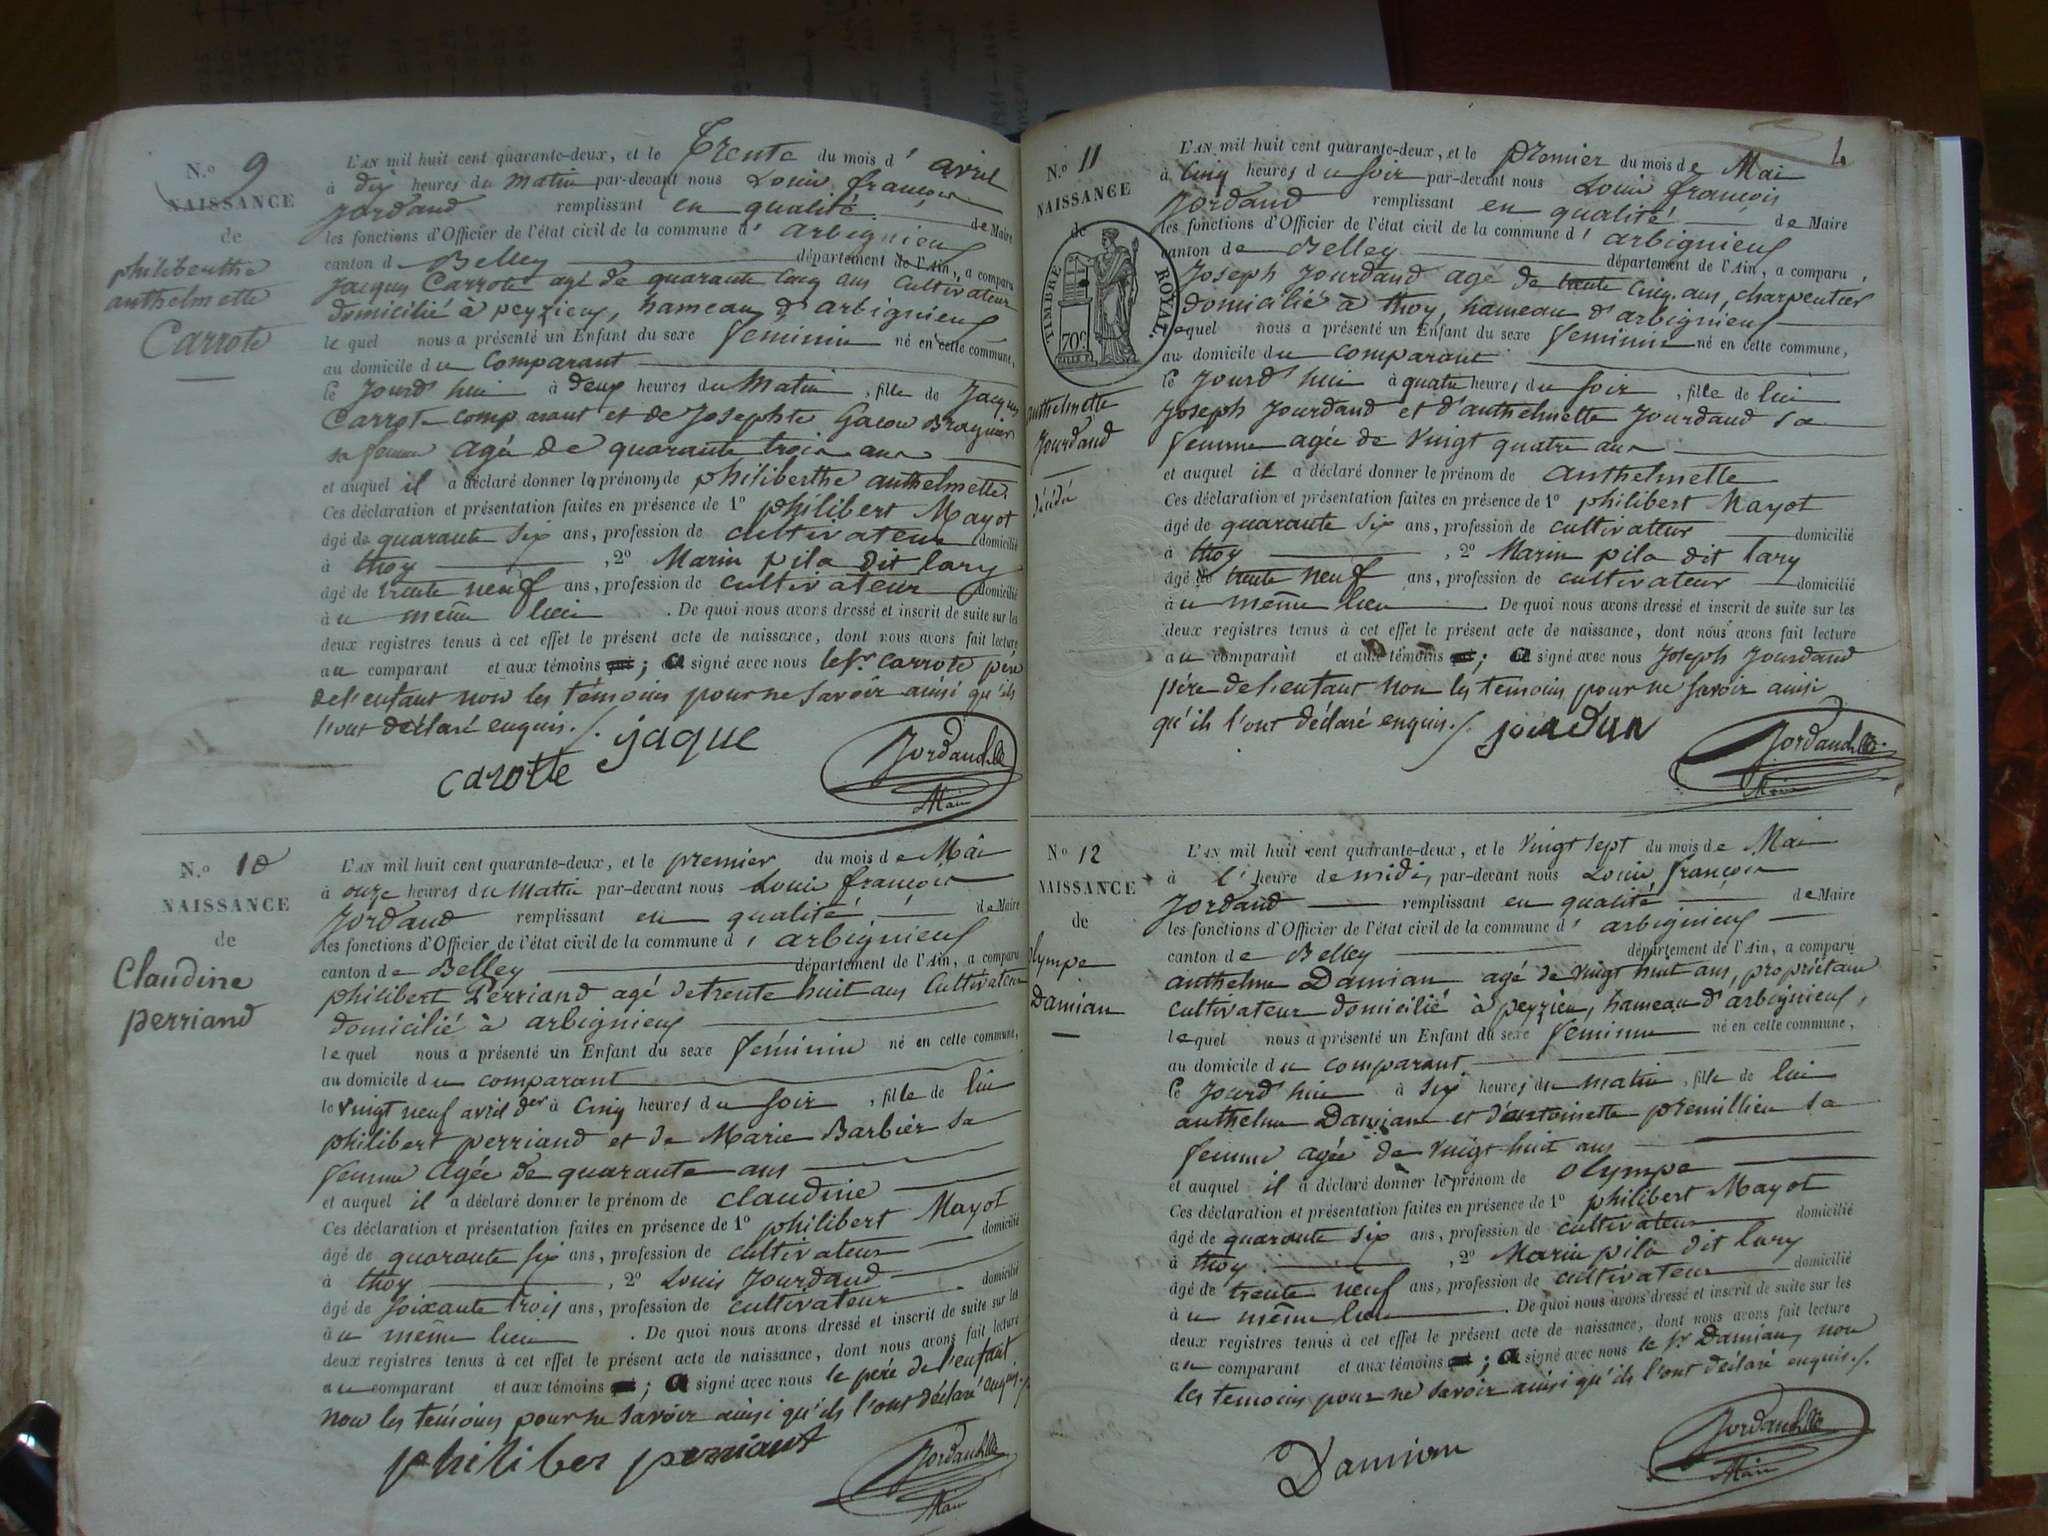 N.o 9
NAISSANCE
de
philiberthe
anthelmette
Carrote
L'AN mil huit cent quarante-deux, et le Trente du mois d' avril
à dix heures du Matin par-devant nous Louis françois
Jordand remplissant en qualité de Maire
les fonctions d'Officier de l'état civil de la commune d' arbignieu
canton de Belley département de l'Ain, a comparu
Jacques Carrote agé de quarante cinq ans Cultivateur
domicilié à peyzieu, hameau d'arbignieu
lequel nous a présenté un Enfant du sexe feminin né en cette commune,
au domicile du comparant
le jourd'hui à deux heures du Matin, fille de Jacques
Carrote comparant et de Josephte Gacon Bragnier
sa femme agée de quarante trois ans
et auquel il a déclaré donner le prénoms de philiberthe anthelmette.
Ces déclaration et présentation faites en présence de 1o philibert Mayot
âgé de quarante six ans, profession de cultivateur domicilié
à thoy, 2o Marin pila dit lary
âgé de trente neuf ans, profession de cultivateur domicilié
à u même lieu. De quoi nous avons dressé et inscrit de suite sur les
deux registres tenus à cet effet le présent acte de naissance, dont nous avons fait lecture
au comparant et aux témoins qui; a signé avec nous le sr carrote père
de l'enfant non les témoins pour ne savoir ainsi qu'ils
l'ont déclaré enquis./.
jaque
carotte
Jordand
Maire
N.o 10
NAISSANCE
de
Claudine
perriand
L'AN mil huit cent quarante-deux, et le premier du mois de Mai
à onze heures du Matin par-devant nous Louis françois
Jordand remplissant en qualité de Maire
les fonctions d'Officier de l'état civil de la commune d' arbignieu
canton de Belley département de l'Ain, a comparu
philibert Perriand agé de trente huit ans Cultivateur
domicilié à arbignieu
lequel nous a présenté un Enfant du sexe féminin né en cette commune,
au domicile du comparant
le vingt neuf avril der à cinq heures du soir, fille de lui
philibert perriand et de Marie Barbier sa
femme agée de quarante ans
et auquel il a déclaré donner le prénom de claudine
Ces déclaration et présentation faites en présence de 1o philibert Mayot
âgé de quarante six ans, profession de cultivateur domicilié
à thoy, 2o Louis Jourdand
âgé de soixante trois ans, profession de cultivateur domicilié
à u même lieu. De quoi nous avons dressé et inscrit de suite sur les
deux registres tenus à cet effet le présent acte de naissance, dont nous avons fait lecture
au comparant et aux témoins qui; a signé avec nous le père de l'enfant
non les témoins pour ne savoir ainsi qu'ils l'ont déclaré enquis./.
philiber perriant
Jordand
Maire
4
N.o 11
NAISSANCE
de
TIMBRE ROYAL.
70c
anthelmette
Jourdand
décédé
L'AN mil huit cent quarante-deux, et le premier du mois de Mai
à cinq heures du soir par-devant nous Louis françois
Jordand remplissant en qualité de Maire
les fonctions d'Officier de l'état civil de la commune d' arbignieu
canton de Belley département de l'Ain, a comparu
Joseph Jourdand agé de trente cinq ans, charpentier
domicilié à thoy, hameau d'arbignieu
lequel nous a présenté un Enfant du sexe feminin né en cette commune,
au domicile du comparant
le jourd'hui à quatre heures du soir, fille de lui
Joseph Jourdand et d'anthelmette Jourdand sa
femme agée de vingt quatre ans
et auquel il a déclaré donner le prénom de anthelmette
Ces déclaration et présentation faites en présence de 1o philibert Mayot
âgé de quarante six ans, profession de cultivateur domicilié
à thoy, 2o Marin pila dit lary
âgé de trente neuf ans, profession de cultivateur domicilié
à u même lieu. De quoi nous avons dressé et inscrit de suite sur les
deux registres tenus à cet effet le présent acte de naissance, dont nous avons fait lecture
au comparant et aux témoins qui; a signé avec nous Joseph Jourdand
père de l'enfant non les témoins pour ne savoir ainsi
qu'ils l'ont déclaré enquis./. jourdan
Jordand
Maire
No 12
NAISSANCE
de
olympe
Damian
L'AN mil huit cent quarante-deux, et le vingt sept du mois de Mai
à l'heure de midi, par-devant nous Louis françois
Jordand remplissant en qualité de Maire
les fonctions d'Officier de l'état civil de la commune d' arbignieu
canton de Belley département de l'Ain, a comparu
anthelme Damian agé de vingt huit ans, propriétaire
cultivateur domicilié à peyzieu, hameau d'arbignieu,
lequel nous a présenté un Enfant du sexe feminin né en cette commune,
au domicile du comparant.
le jourd'hui à six heures du matin, fille de lui
anthelme Damian et d'antoinette premillieu sa
femme agée de vingt-huit ans
et auquel il a déclaré donner le prénom de olympe
Ces déclaration et présentation faites en présence de 1o philibert Mayot
âgé de quarante six ans, profession de cultivateur domicilié
à thoy, 2o Marin pila dit lary
âgé de trente neuf ans, profession de cultivateur domicilié
à u même lieu. De quoi nous avons dressé et inscrit de suite sur les
deux registres tenus à cet effet le présent acte de naissance, dont nous avons fait lecture
au comparant et aux témoins qui; a signé avec nous le sr Damian, non
les témoins pour ne savoir ainsi qu'ils l'ont déclaré enquis./.
Damian
Jordand
Maire